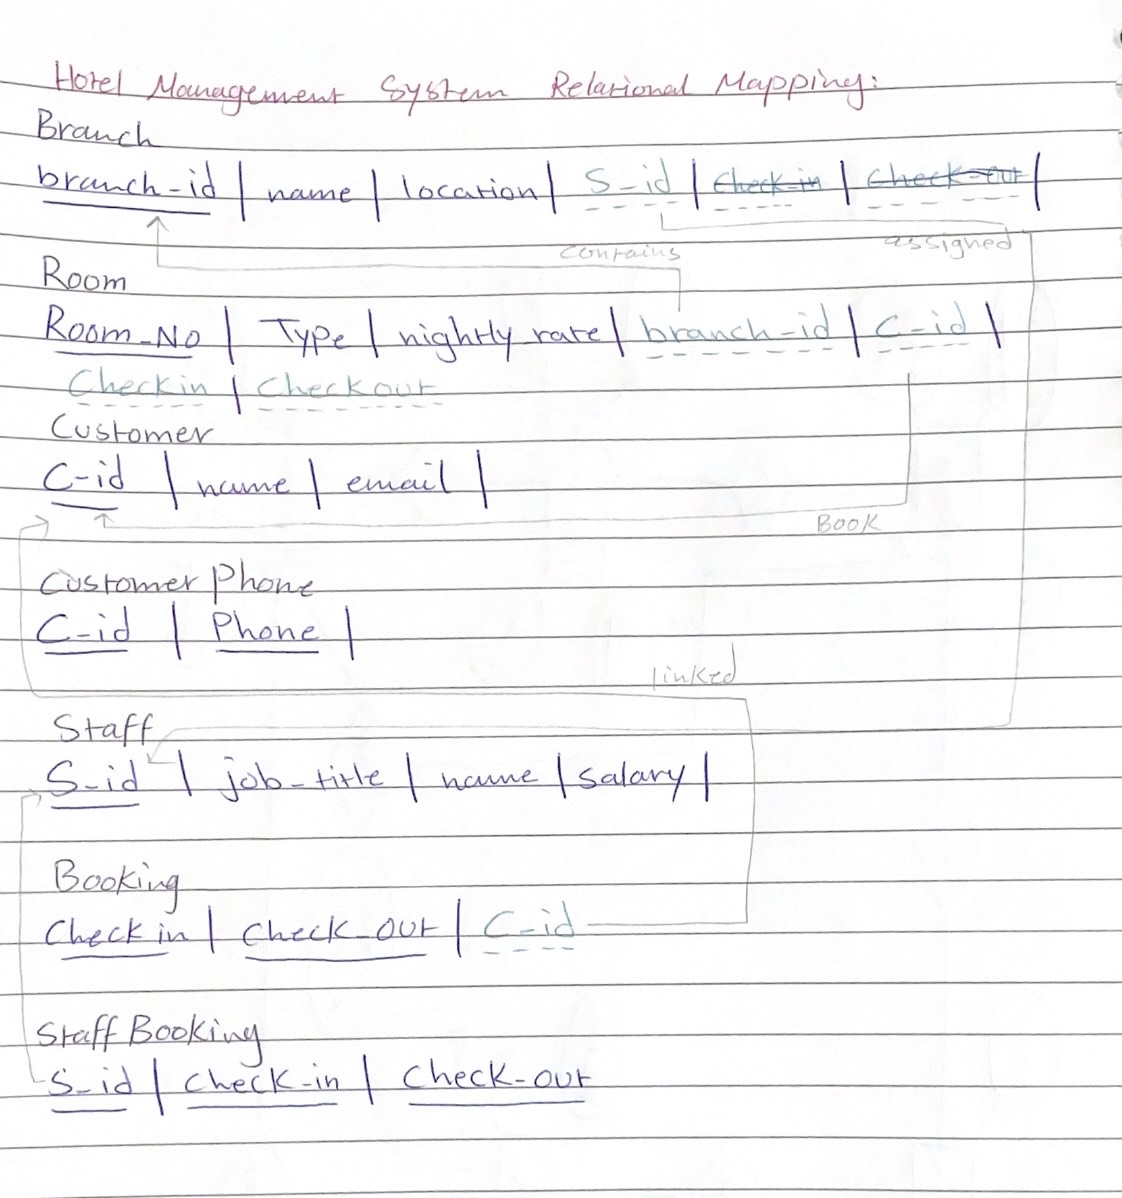 Hotel Management System Relational Mapping:
Branch
branch-id | name | location | S-id | Check-in | Check-out |
contains assigned
Room
Room-No | Type | nightly rate | branch-id | C-id |
Checkin | Checkout
Customer
C-id | name | email |
Book
Customer Phone
C-id | Phone |
linked
Staff
S-id | job-title | name | salary |
Booking
Check in | Check-out | C-id
Staff Booking
S-id | Check-in | Check-out